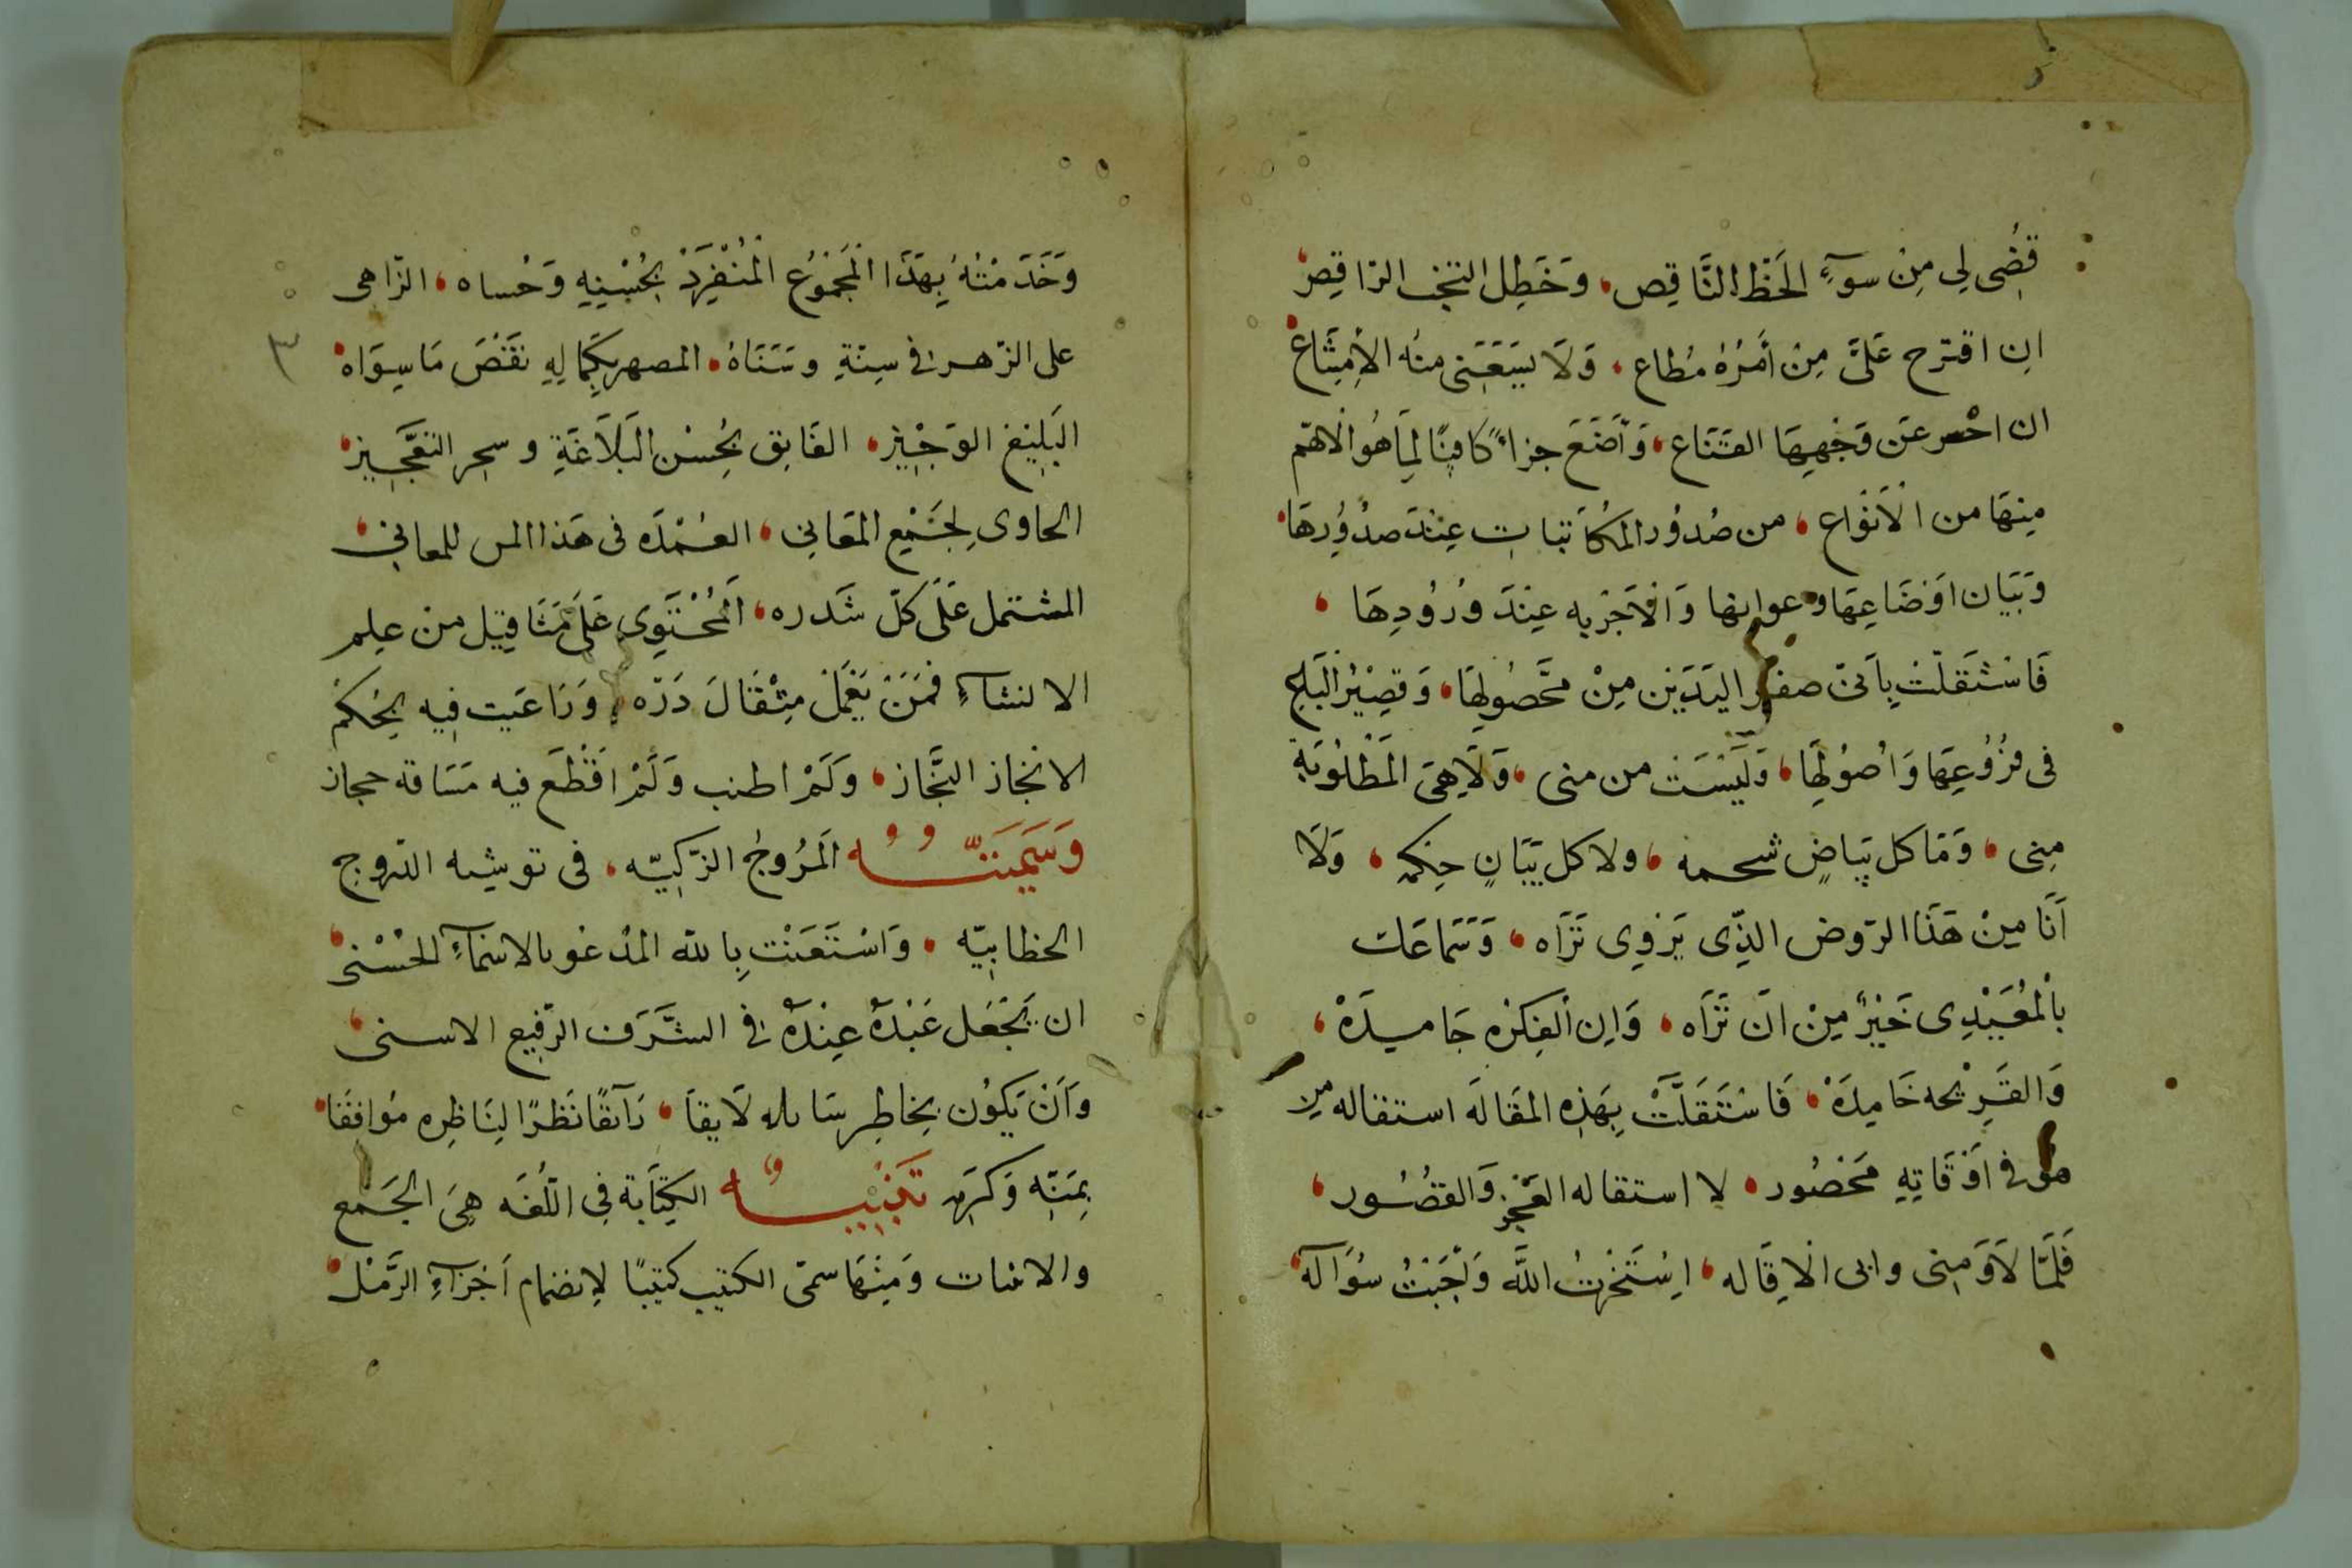 قُضِى لِى مِنْ سوءِ الحَظّ النَّاقِص، وَخَطِل البخت الرَاقِص،
ان اقترح عَلىَّ مِنْ أمْرُهُ مُطاع، وَلَا يَسَعَنى منه الأمتناع
ان احسر عَن وَجْهِهَا القنَاع، وَأضَعَ جزاءً كافيًا لِمَا هُو الأهم
مِنهَا من الأنواع، من صُدُور المكاتبات عِنْدَ صدُورِهَا،
وَبَيَان اَوضَاعِهَا وعوانها وَالأجْربه عِنْدَ وُرُودِهَا،
فَاسْتَقَلتْ بِأنىّ صفر اليَدَيْن مِنْ محَّصُولِهَا، وَقصِيْرُ البَاع
فى فرُوُعِهَا وَأصُوُلِهَا، وَلَيْسَتْ من منى، وَلَا هِىَ المَطْلُوبَةِ
مِنى، وَمَا كل بيَاضٍ شحمه، ولا كل بَيَانٍ حِكمه، وَلَا
اَنَا مِنْ هَذَا الرّوض الذّى يَرْوِى ثرَاه، وَسَمَاعَك
بالمُعَيْدِى خَيْرٌ مِنْ اَن تَرَاه، وَاِن الفِكرُه جَامِدَهْ،
وَالقَرِيْحه خَامِدَهْ، فَاسْتَقَلَّتْ بِهَذِهِ المقَالَه استقاله مِن
هُو فى اَوْقَاتِهِ مَحْصُور، لا استقاله العَجْز وَالقصُوُر،
فَلَمَّا لَاوَمِنى وابى الاقاله، اسْتَخَرتُ اللَّه وَاَجَبْتُ سُؤاله،
وَخَدَمْتُهُ بِهَذَا المَجْمُوُع المُنْفِرَدْ بِحُسْنِهِ وَحُساه، الزّاهى
على الزّهر فى سِنَةِ وسَنَاهُ، المصهر بِكَمالِهِ نقصَ مَا سِوَاهُ
البَلِيْغ الوَجْيِز، الفَايق بِحُسْن البَلَاغَةِ وسحر التعَّجِيز،
الحاوى لِجَمْيِع المعَانِى، العُمْدَه فى هَذا المس للمعانى،
المشتمل عَلَى كلّ شَدره، المحْتَوِى عَلَى مَثَاقِيل من علِم
الانشاءِ فمَنَ يَعْمَل مِثْقَالَ ذَرّه، وَرَاعَيت فيه بِحُكمْ
الانجاز النجَّاز، وَلَمْ اطنب وَلَمْ اقْطَع فيه مَسَافه حجاز
وَسَمَّيْتُهُ المَرُوجُ الزّكيّه، فى توشيه الدّروج
الخطابيّه، وَاسْتَعَنْت بِالله المدْعُو بالاسمَاءِ الحُسْنى،
ان يَجْعَل عَبْدَهُ عِنْدَهُ فى الشَّرَف الرّفيع الاسنى،
وَأَنْ يَكوُن بخاطِر سَايله لَايقاَ، رَآيقًا نَظرًا لِنَاظِرِه مُوافقًا،
بِمَنِّهِ وَكرَمِهِ تَنْبِيْهٌ الكِتَابَة فى اللّغَه هِىَ الجَمع
والاثبات وَمِنْهَا سمّى الكتيب كتيبًا لاِنضمام اَجْزَاءِ الرَّمْل،
٣